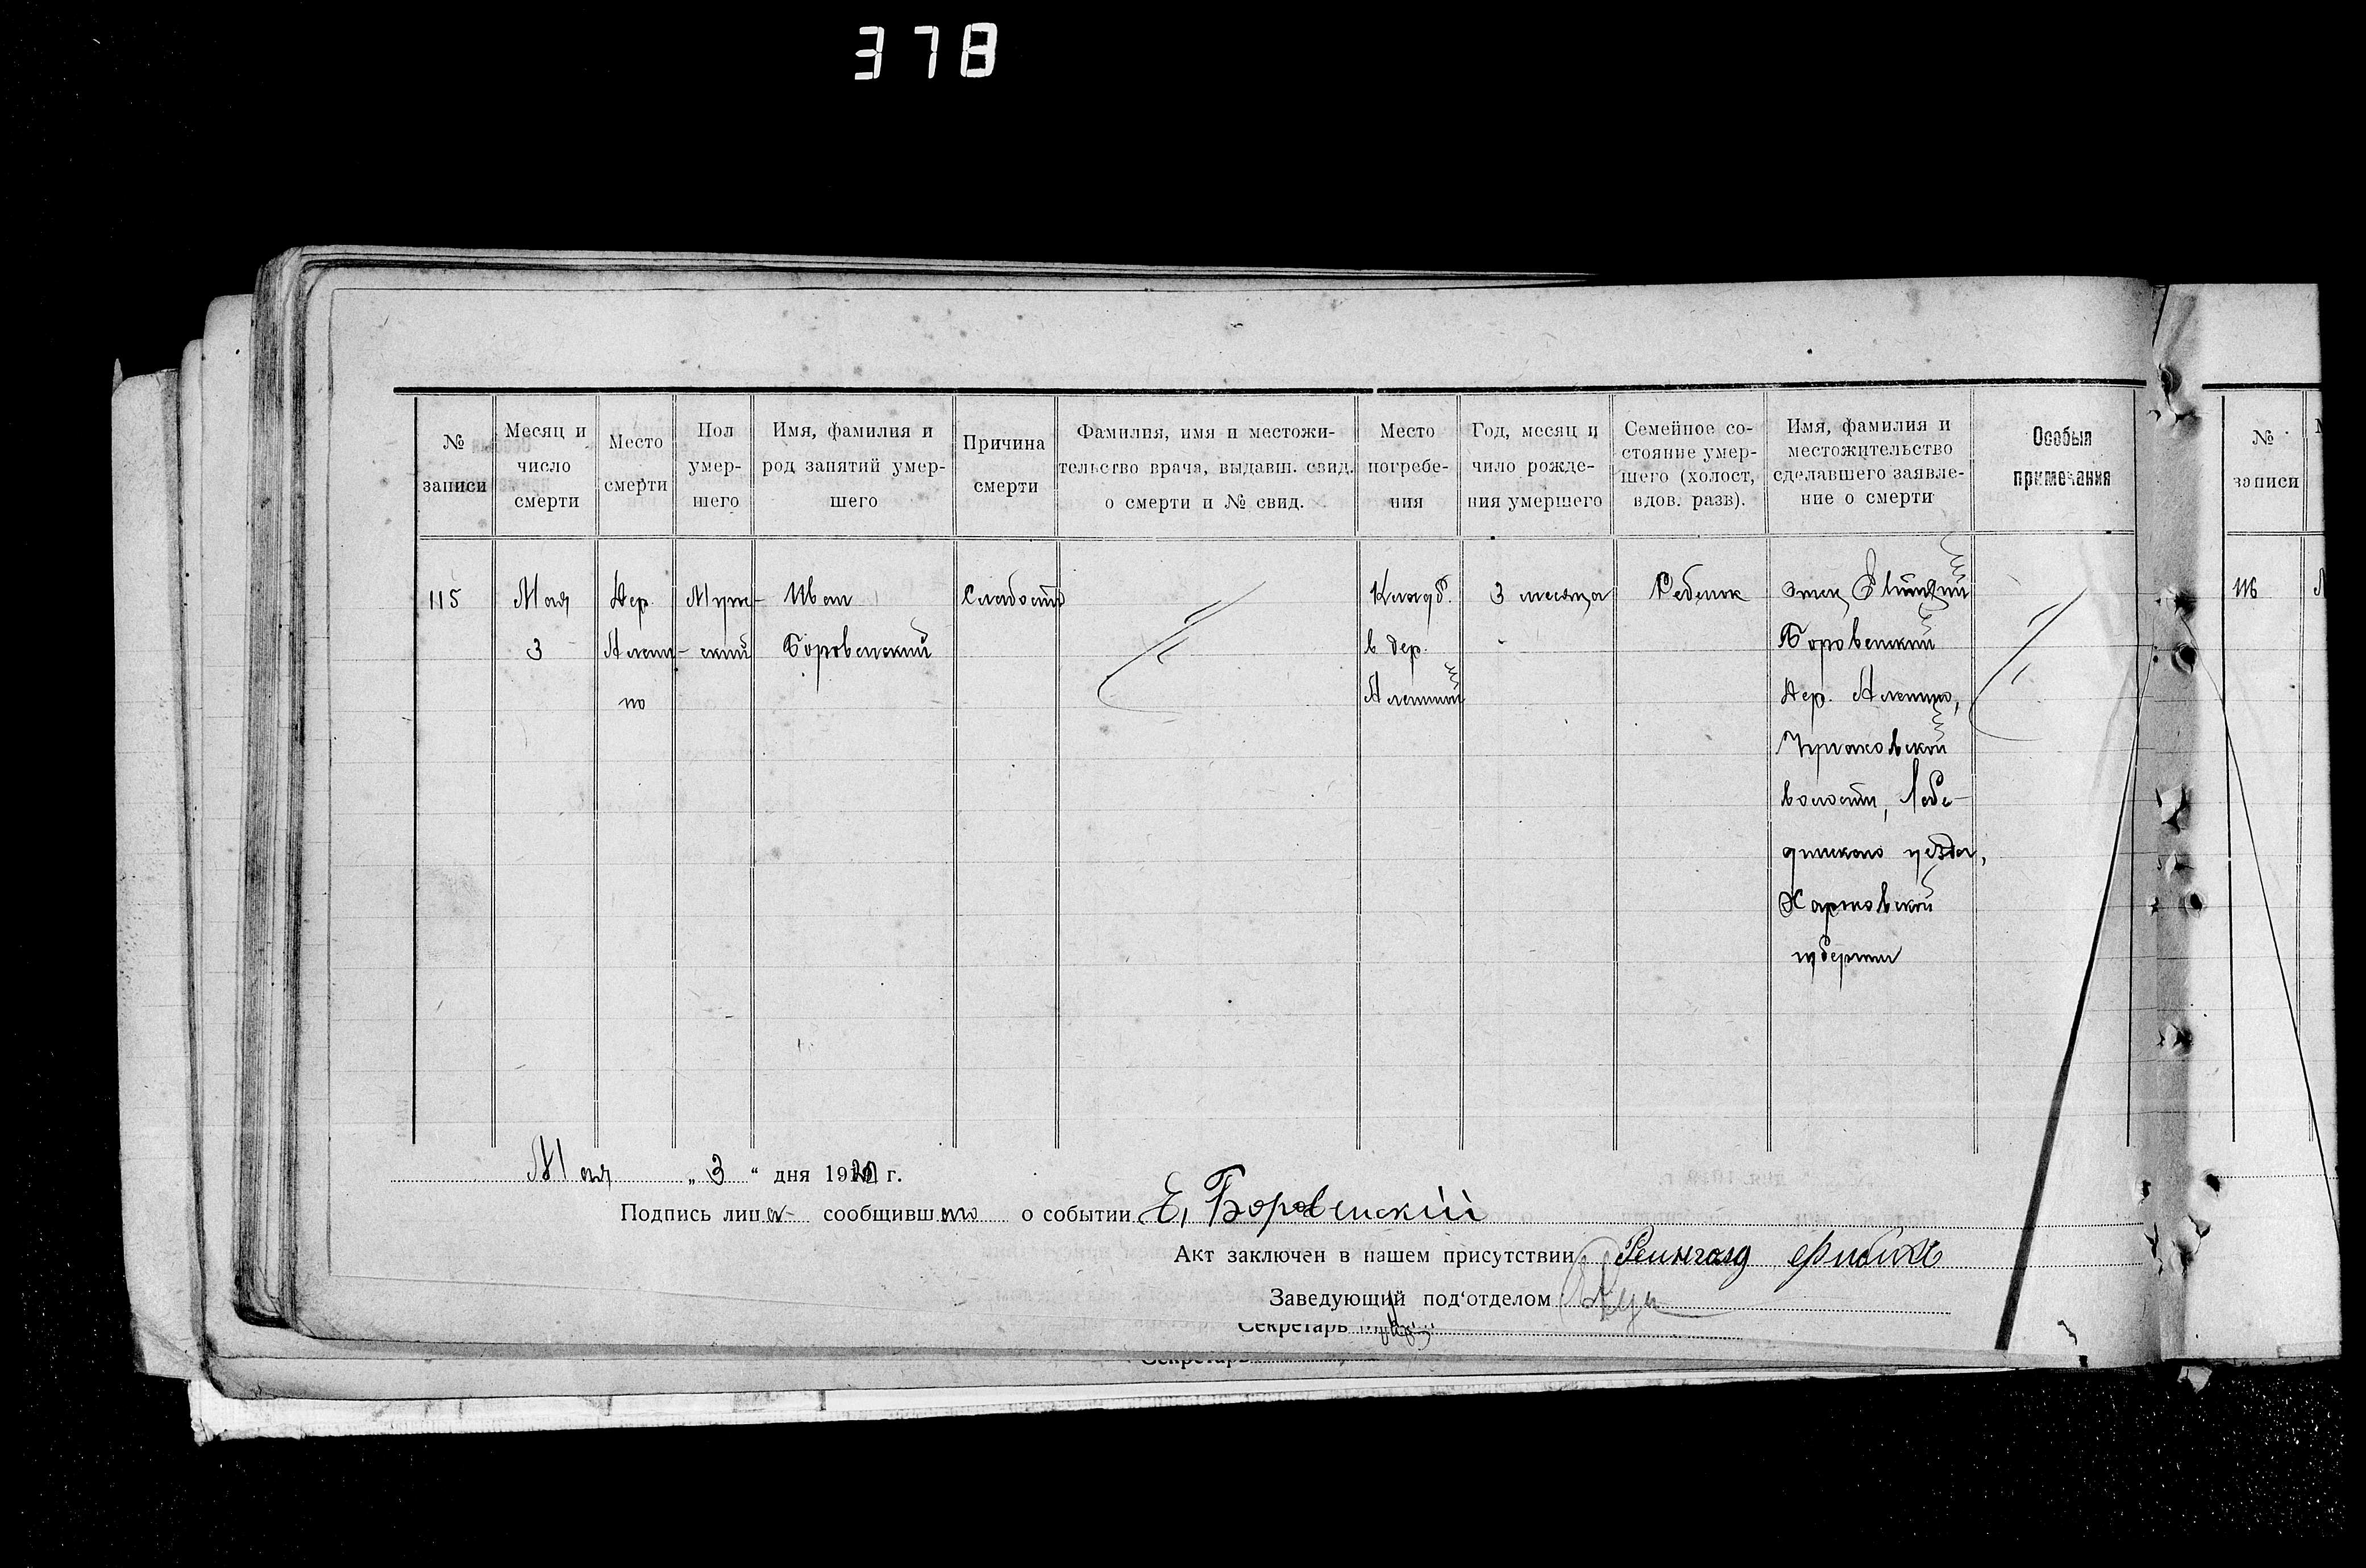 378
№ записи
Месяц и число смерти
Место смерти
Пол умер- шего
Имя, фамилия и род занятий умер- шего
Причина смерти
Фамилия, имя и местожи- тельство врача, выдавш. свид. о смерти и № свид.
Место погребе- ния
Год, месяц и чило рожде- ния умершего
Семейное со- стояние умер- шего (холост, вдов. разв).
Имя, фамилия и местожительство сделавшего заявле- ние о смерти
Особыя примечания
№ записи
115
Мая
3
Дер.
Алешт-
но
Муж-
ский
Иван
Боровенский
Слабость
Кладб.
в дер.
3 месяца
Ребенок
Отец
Боровенский
Дер.
волости, Лебе-
динского уезда,
Харьковской
губернии
116
Мая „ 3 “ дня 1920 г.
Подпись лица сообщившаго о событии Е. Боровенскій
Акт заключен в нашем присутствии
Заведующий под‘отделом
Секретарь
Секретарь